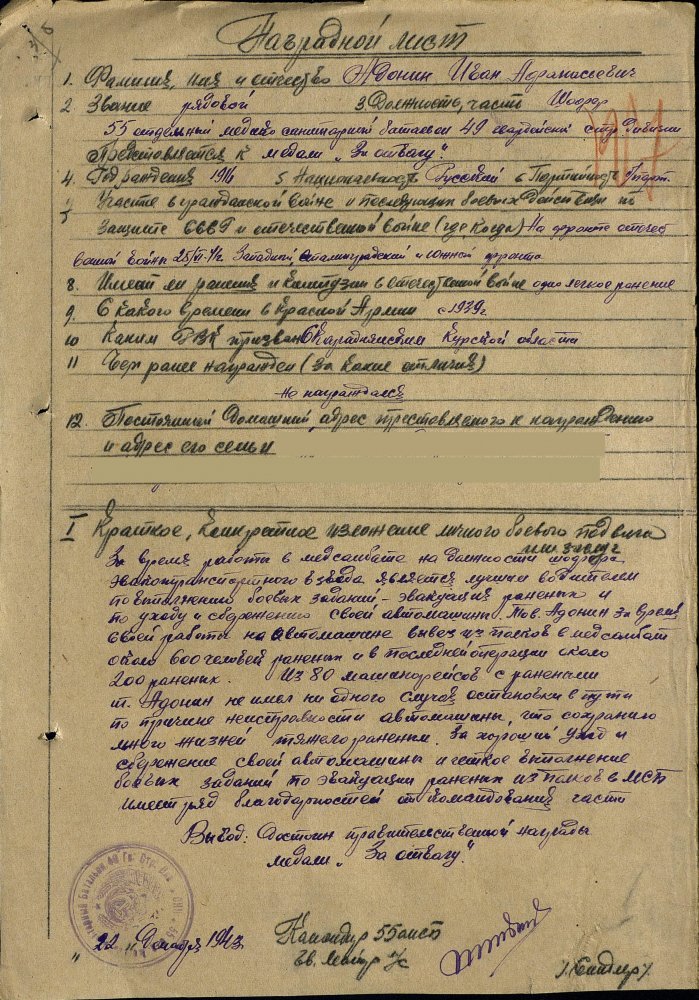 Наградной лист
1. Фамилия, имя и отчество Адонин Иван Афанасьевич
2 Звание рядовой 3 Должность, часть Шофер
55 отдельный медико санитарный батальон 49 гвардейской стр. дивизии
Представляется к медали „За отвагу"
4. Год рождения 1916 5 Национальность Русский 6 Партийность
7 Участие в гражданской войне и последующих боевых действиях по
защите СССР и отечественной войне (где когда) На фронте отечест
венной войны Западный, Сталинградский и Южный фронта
8. Имеет ли ранения и контузии в отечественной войне одно легкое ранение
9. С какого времени в Красной Армии с 1939г
10 Каким РВК призван Скароднянским Курской области
11 Чем ранее награжден (за какие отличия)
Не награждался
12. Постоянный домашний адрес представляемого к награждению
и адрес его семьи
I Краткое, конкретное изложение личного боевого подвига
или заслуг
За время работы в медсанбате на должности шофера
эвакотранспортного взвода является лучшим водителем
по выполнению боевых заданий - эвакуация раненых и
по уходу и сбережению своей автомашины. Тов. Адонин за время
своей работы на автомашине вывез из полков в медсанбат
около 600 человек раненых и в последней операции около
200 раненых. Из 80 машинорейсов с ранеными
т. Адонин не имел ни одного случая остановки в пути
по причине неисправности автомашины, что сохранило
много жизней тяжелораненым. За хороший уход и
сбережение своей автомашины и четкое выполнение
боевых заданий по эвакуации раненых из полков в МСБ
имеет ряд благодарностей от командования части
Вывод: Достоин правительственной награды
медали „За отвагу".
"22" декабря 1943.
Командир 55 омсб
Гв. майор м/с